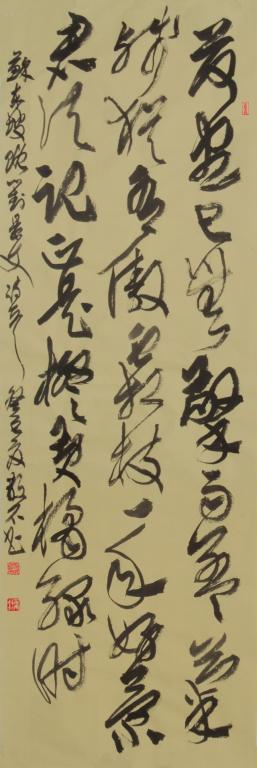 荷盡已無擎雨蓋菊
殘猶有傲霜枝一年好景
君須記正是橙黃橘綠時
蘇東坡贈劉景文詩